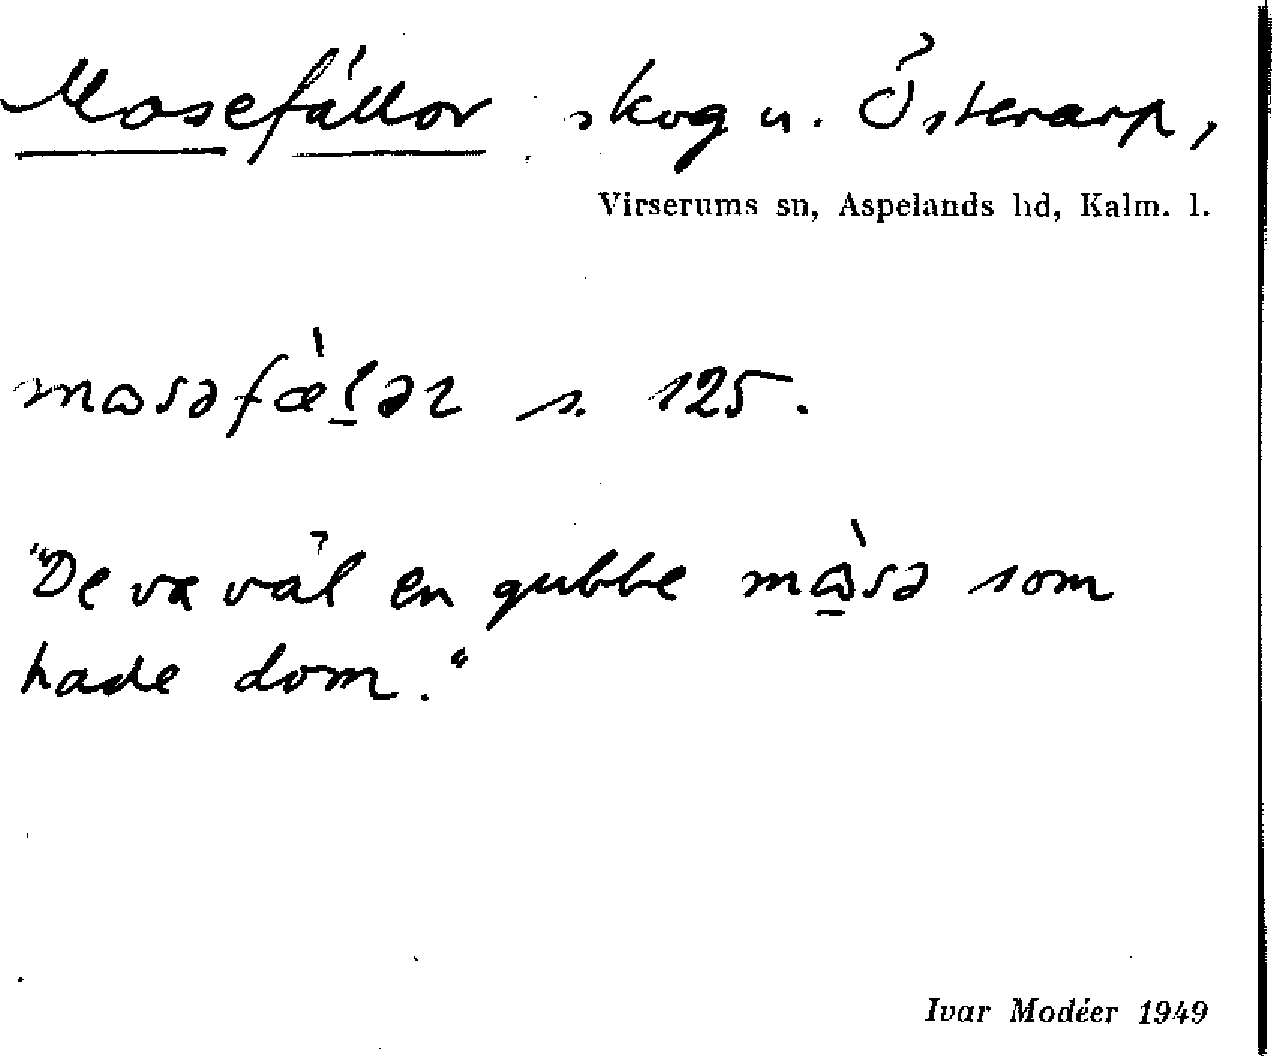 Mosefällor skog u. Österarp,
Virserums sn, Aspelands hd, Kalm. l.
s. 125.
"De va väl en gubbe som
hade dom."
Ivar Modéer 1949